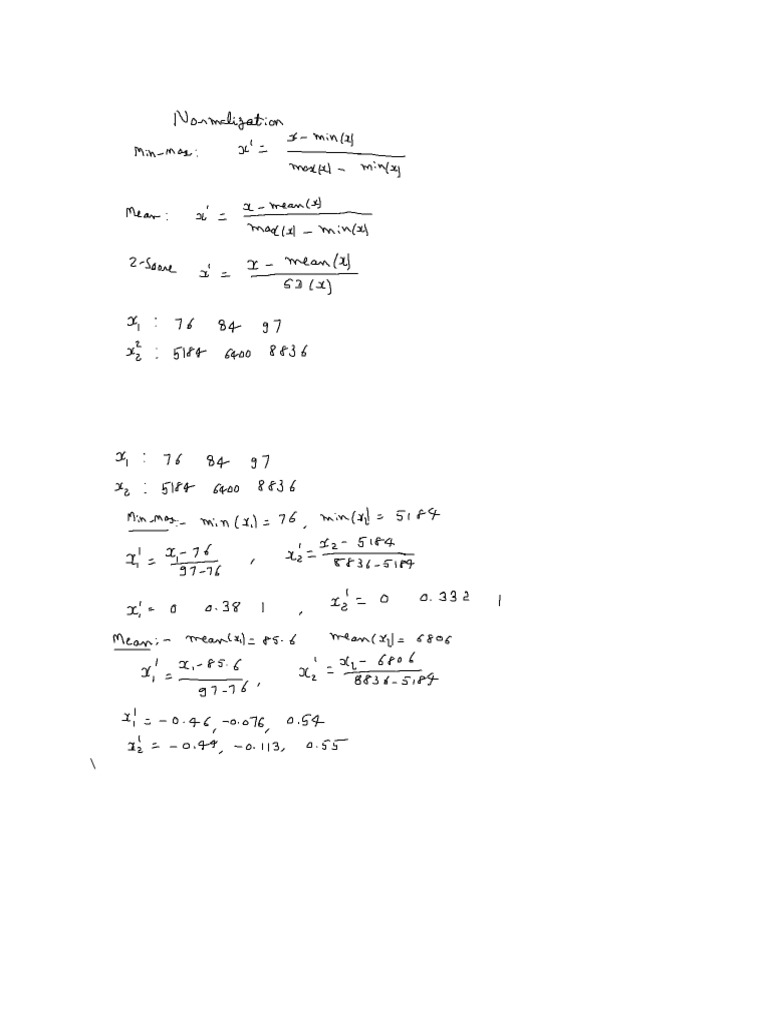 Normalization
Min-max: x' = (x - min(x)) / (max(x) - min(x))
Mean: x' = (x - mean(x)) / (max(x) - min(x))
Z-Score x' = (x - mean(x)) / SD(x)
x₁ : 76 84 97
x₂² : 5184 6400 8836
x₁ : 76 84 97
x₂ : 5184 6400 8836
Min-max:- min(x₁) = 76, min(x₂) = 5184
x₁' = (x₁ - 76) / (97-76) , x₂' = (x₂ - 5184) / (8836-5184)
x₁' = 0 0.38 1 , x₂' = 0 0.332 1
Mean:- mean(x₁) = 85.6 mean(x₂) = 6806
x₁' = (x₁ - 85.6) / (97-76) , x₂' = (x₂ - 6806) / (8836-5184)
x₁' = -0.46, -0.076, 0.54
x₂' = -0.44, -0.113, 0.55